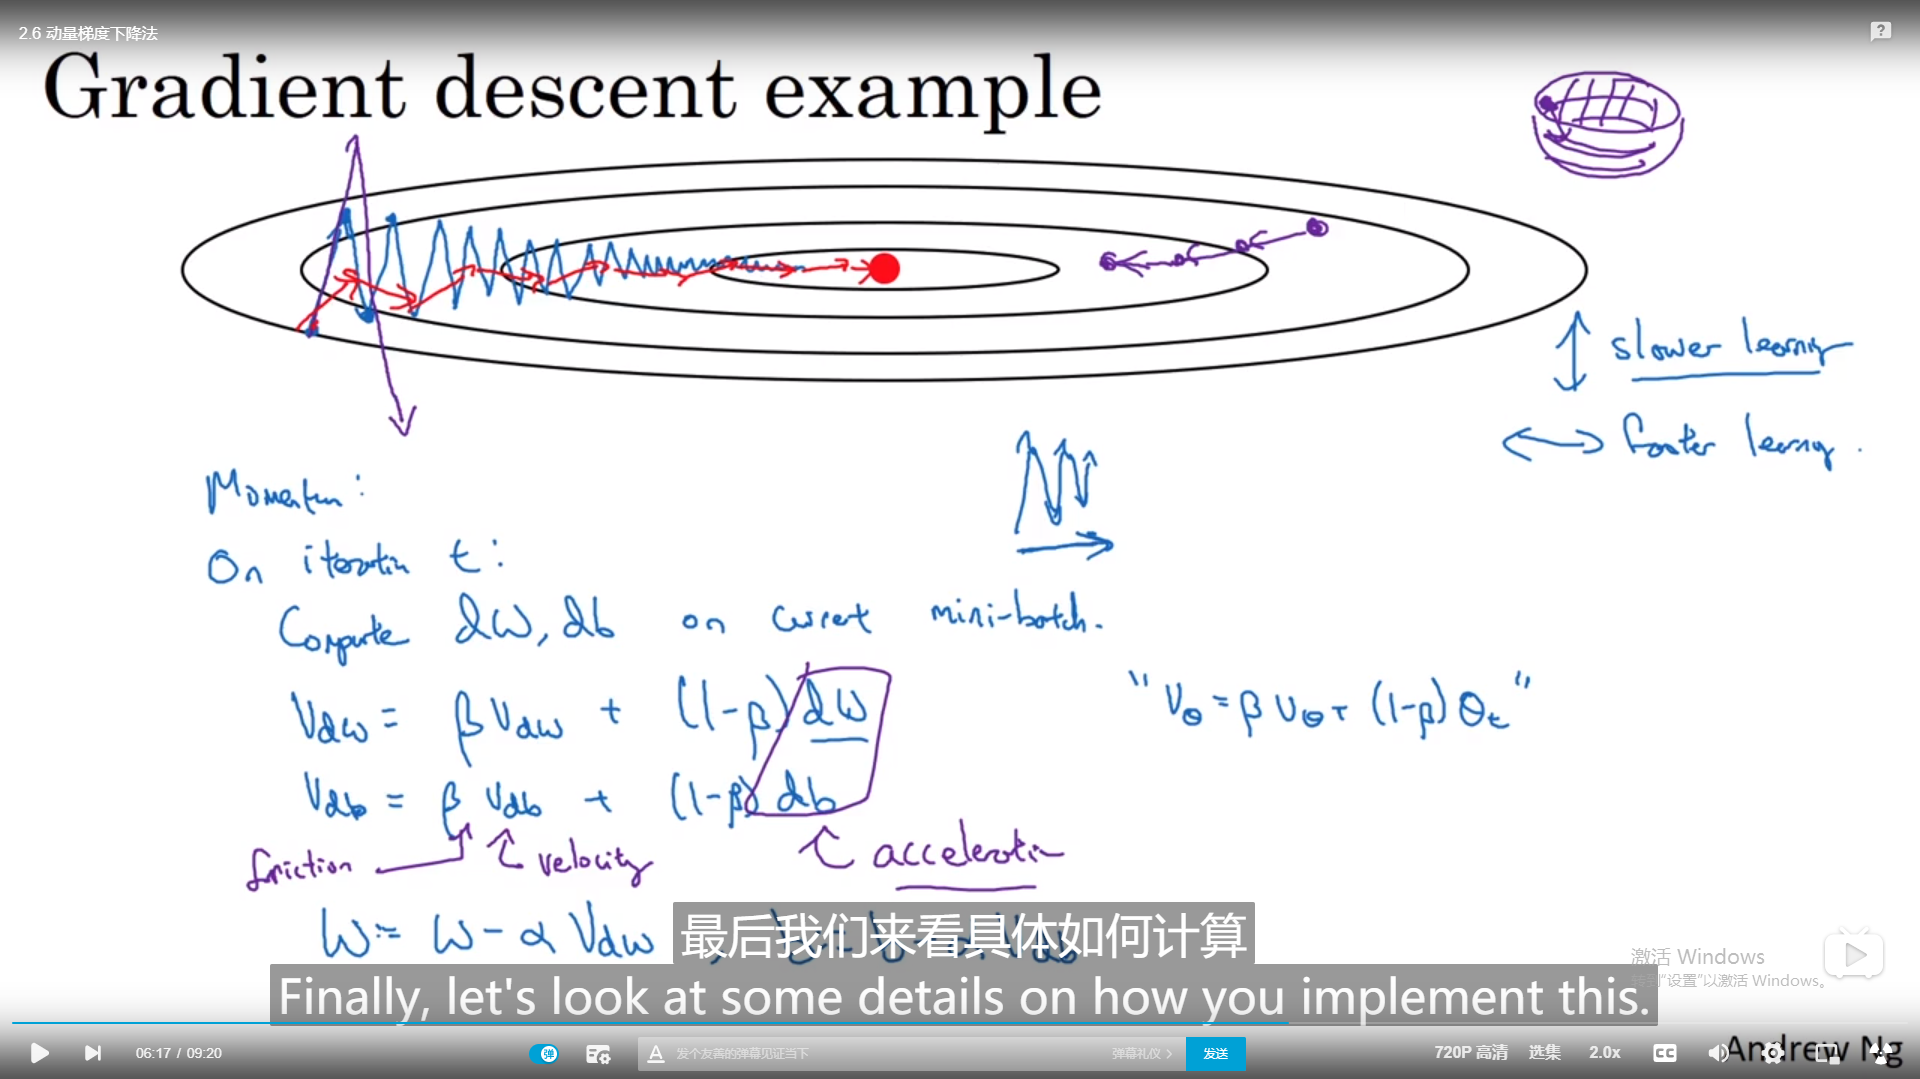 2.6 动量梯度下降法
Gradient descent example
slower learning
faster learning.
Momentum:
On iteration t:
Compute dW, db on current mini-batch.
Vdw = βVdw + (1-β)dW
"Vθ = βVθ + (1-β)θt"
Vdb = βVdb + (1-β)db
friction velocity acceleration
W := W - αVdw
最后我们来看具体如何计算
Finally, let's look at some details on how you implement this.
激活 Windows
转到"设置"以激活 Windows。
Andrew Ng
06:17 / 09:20
弹
发个友善的弹幕见证当下
弹幕礼仪 >
发送
720P 高清
选集
2.0x
CC